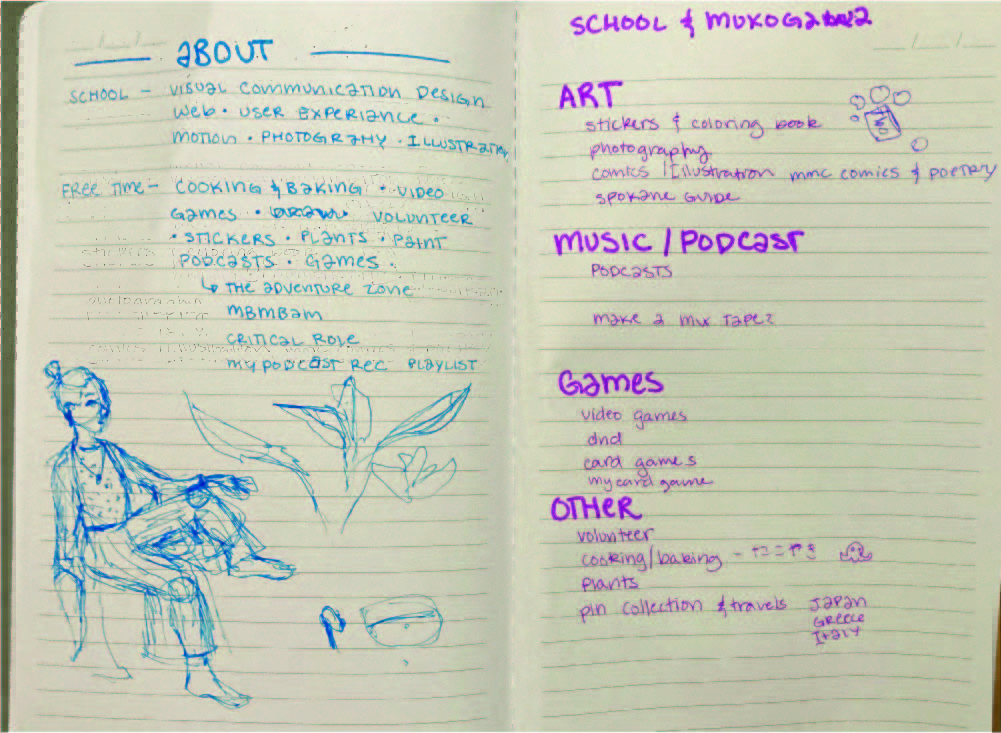 ABOUT
SCHOOL - VISUAL COMMUNICATION DESIGN
WEB • USER EXPERIENCE •
MOTION • PHOTOGRAPHY • ILLUSTRATION
FREE TIME - COOKING & BAKING • VIDEO
GAMES • DRAW • VOLUNTEER
• STICKERS • PLANTS • PAINT
PODCASTS • GAMES •
↳ THE ADVENTURE ZONE
MBMBAM
CRITICAL ROLE
MY PODCAST REC PLAYLIST
SCHOOL & MUKOGAWA
ART
stickers & coloring book
photography
comics / Illustration mmc comics & POETRY
SPOKANE GUIDE
MUSIC / PODCAST
PODCASTS
make a mix tape?
Games
video games
dnd
card games
my card game
OTHER
volunteer
cooking/baking - たこやき
plants
pin collection & travels JAPAN
GREECE
ITALY